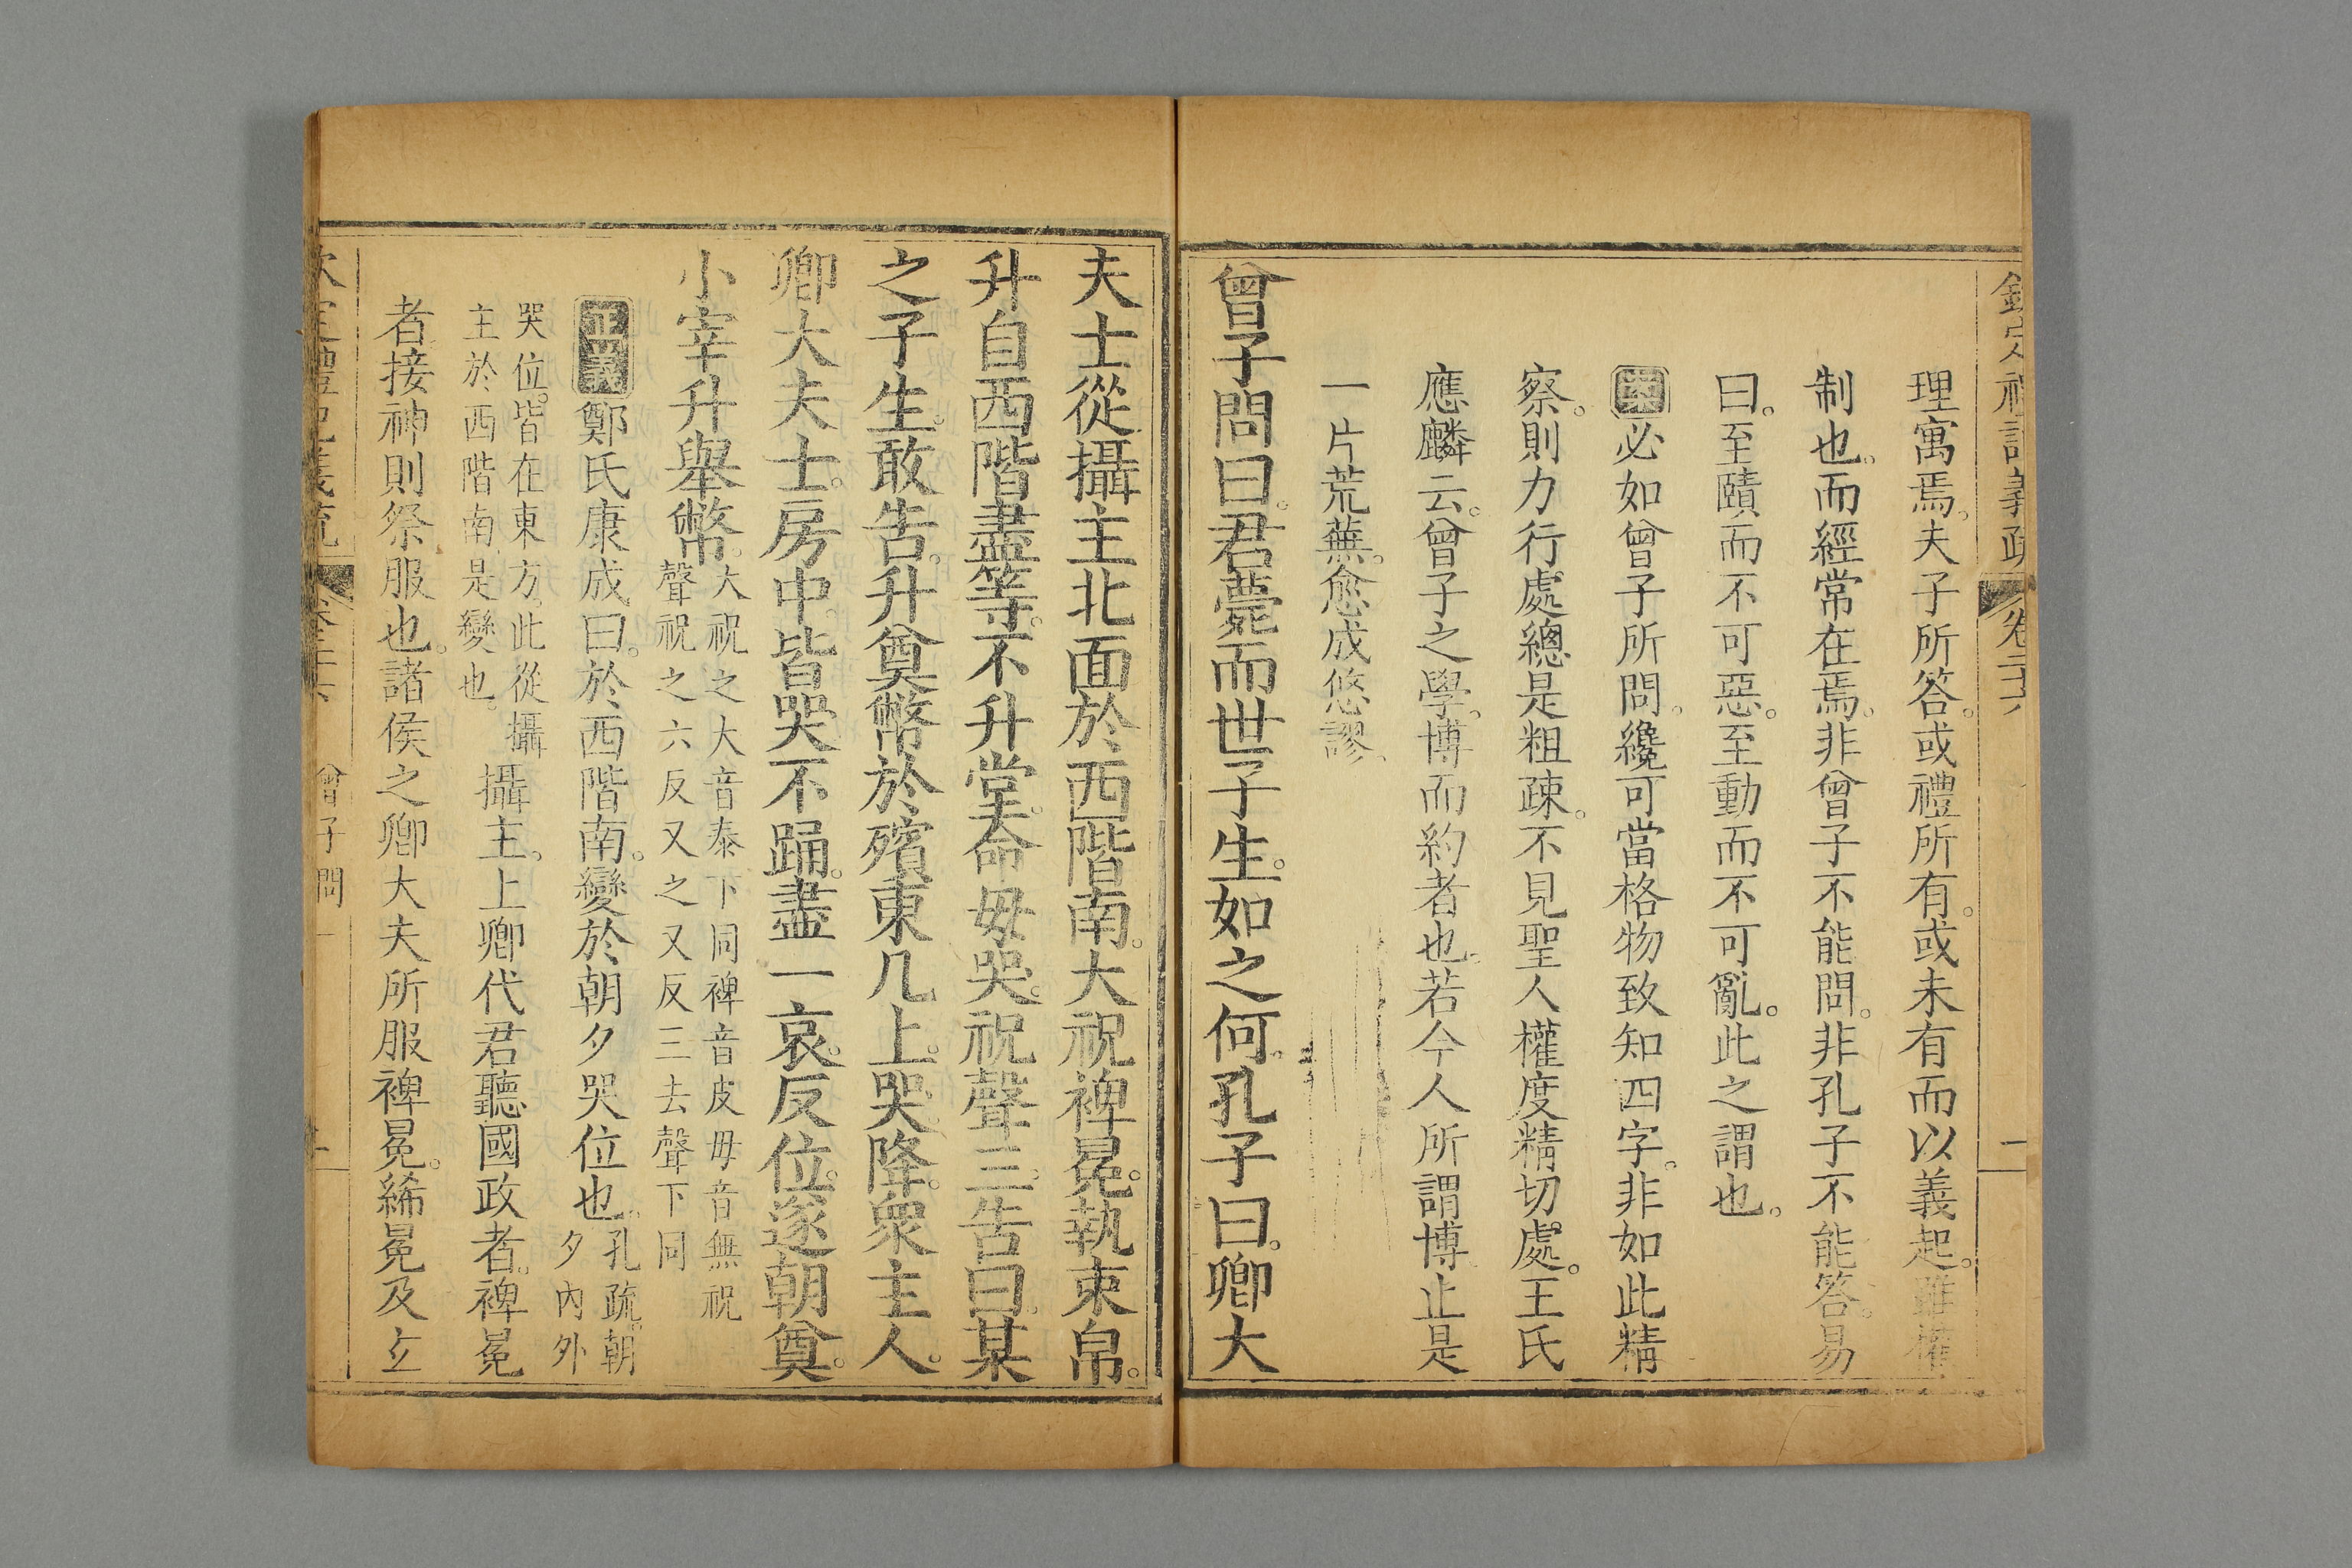 理寓焉。夫子所答。或禮所有。或未有而以義起。雖權
制也。而經常在焉。非曾子不能問。非孔子不能答。易
曰。至賾而不可惡。至動而不可亂。此之謂也。
案必如曾子所問。纔可當格物致知四字。非如此精
察。則力行處總是粗疎。不見聖人權度精切處。王氏
應麟云。曾子之學。博而約者也。若今人所謂博。止是
一片荒蕪。愈成悠謬。
曾子問曰。君薨而世子生。如之何。孔子曰。卿大
夫士從攝主北面於西階南。大祝裨冕。執束帛。
升自西階盡等。不升堂。命毋哭。祝聲三。告曰。某
之子生。敢告。升奠幣於殯東几上。哭降。衆主人。
卿大夫士。房中。皆哭不踊。盡一哀。反位。遂朝奠。
小宰升舉幣。
大祝之大音泰下同裨音皮毋音無祝
聲祝之六反又之又反三去聲下同
正義鄭氏康成曰。於西階南。變於朝夕哭位也。
孔疏。朝
夕內外
哭位。皆在東方。此從攝
主於西階南。是變也。
攝主。上卿代君聽國政者。裨冕
者。接神則祭服也。諸侯之卿大夫所服裨冕。絺冕及玄
欽定禮記義疏 卷二十六 曾子問 一